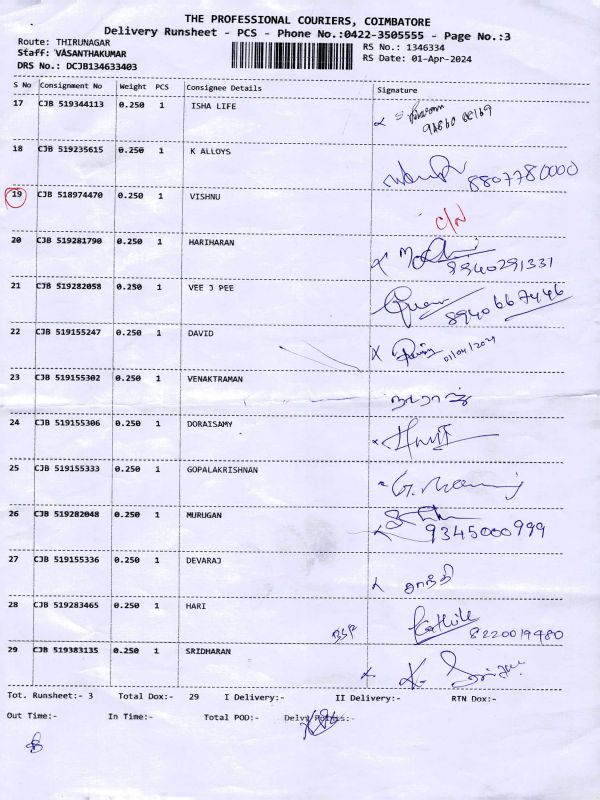 THE PROFESSIONAL COURIERS, COIMBATORE
Delivery Runsheet - PCS - Phone No.:0422-3505555 - Page No.:3
Route: THIRUNAGAR
RS No.: 1346334
Staff: VASANTHAKUMAR
RS Date: 01-Apr-2024
DRS No.: DCJB134633403
S No Consignment No Weight PCS Consignee Details Signature
17 CJB 519344113 0.250 1 ISHA LIFE
18 CJB 519235615 0.250 1 K ALLOYS
8807780000
19 CJB 518974470 0.250 1 VISHNU
C/N
20 CJB 519281790 0.250 1 HARIHARAN
9940291331
21 CJB 519282058 0.250 1 VEE J PEE
8940667446
22 CJB 519155247 0.250 1 DAVID
01/04/2024
23 CJB 519155302 0.250 1 VENAKTRAMAN
24 CJB 519155306 0.250 1 DORAISAMY
25 CJB 519155333 0.250 1 GOPALAKRISHNAN
26 CJB 519282048 0.250 1 MURUGAN
9345000999
27 CJB 519155336 0.250 1 DEVARAJ
சாந்தி
28 CJB 519283465 0.250 1 HARI
8220019480
29 CJB 519383135 0.250 1 SRIDHARAN
Tot. Runsheet:- 3 Total Dox:- 29 I Delivery:- II Delivery:- RTN Dox:-
Out Time:- In Time:- Total POD:- Delvy Points:-